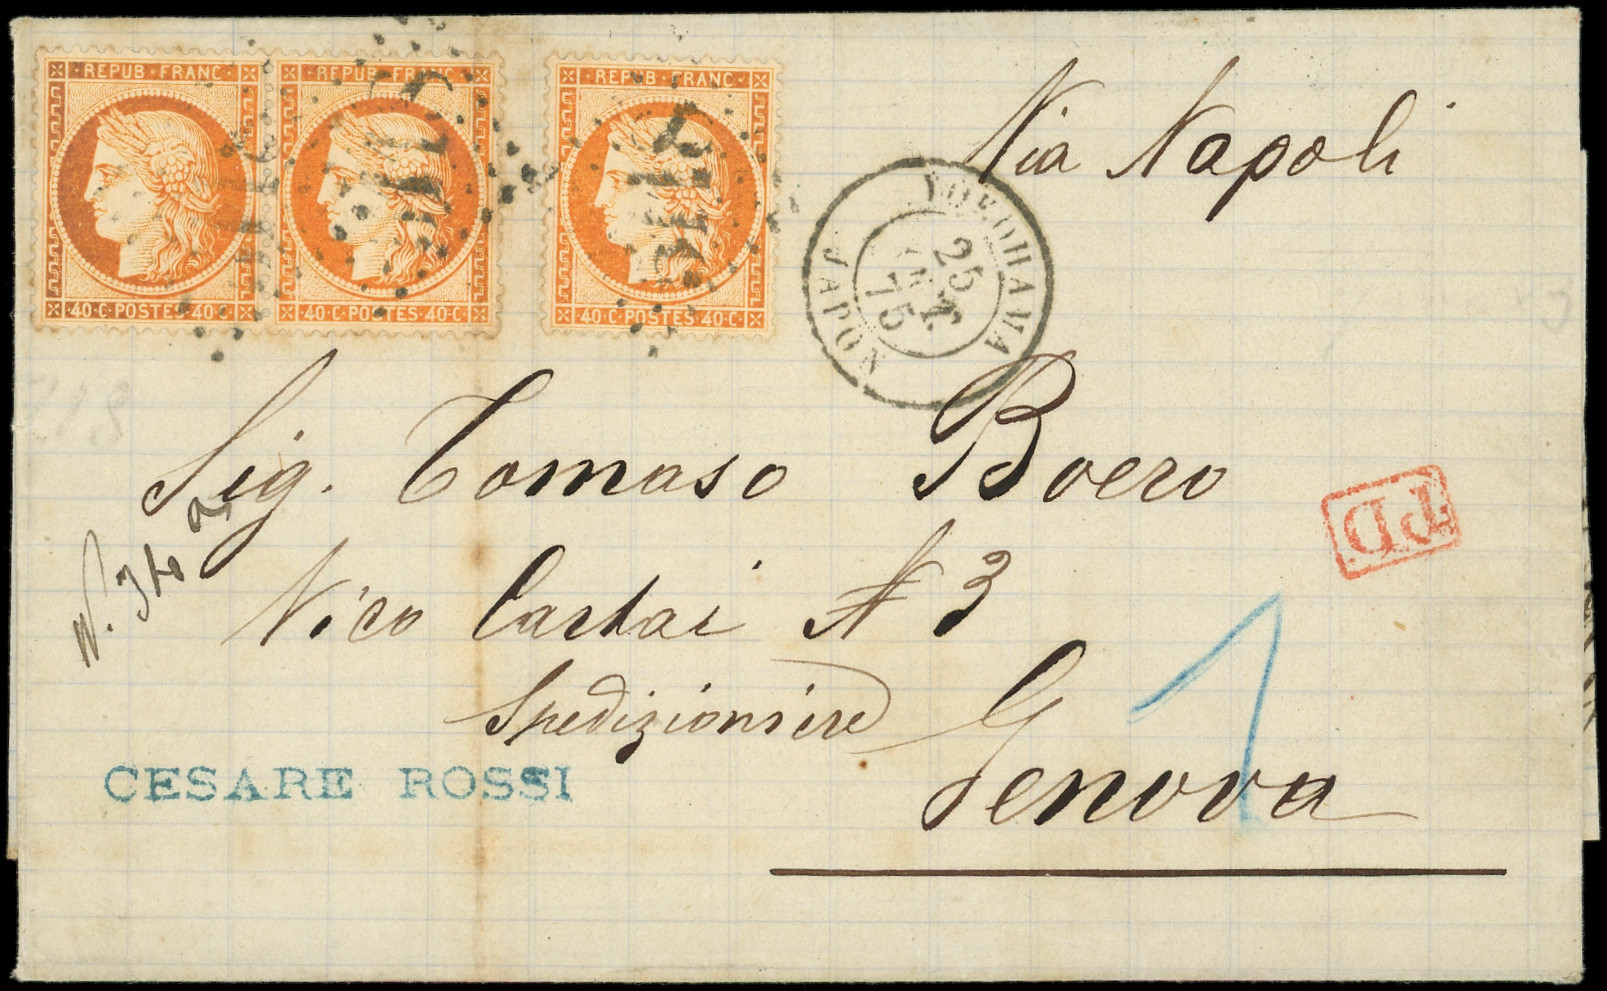 REPUB·FRANC REPUB·FRANC REPUB·FRANC
40·C·POSTES·40·C· 40·C·POSTES·40·C· 40·C·POSTES·40·C·
Via Napoli
YOKOHAMA
25
75
JAPON
Sig. Tomaso Boero
PD
Vico Cartai N 3
Spedizioniere
Genova
1
CESARE ROSSI